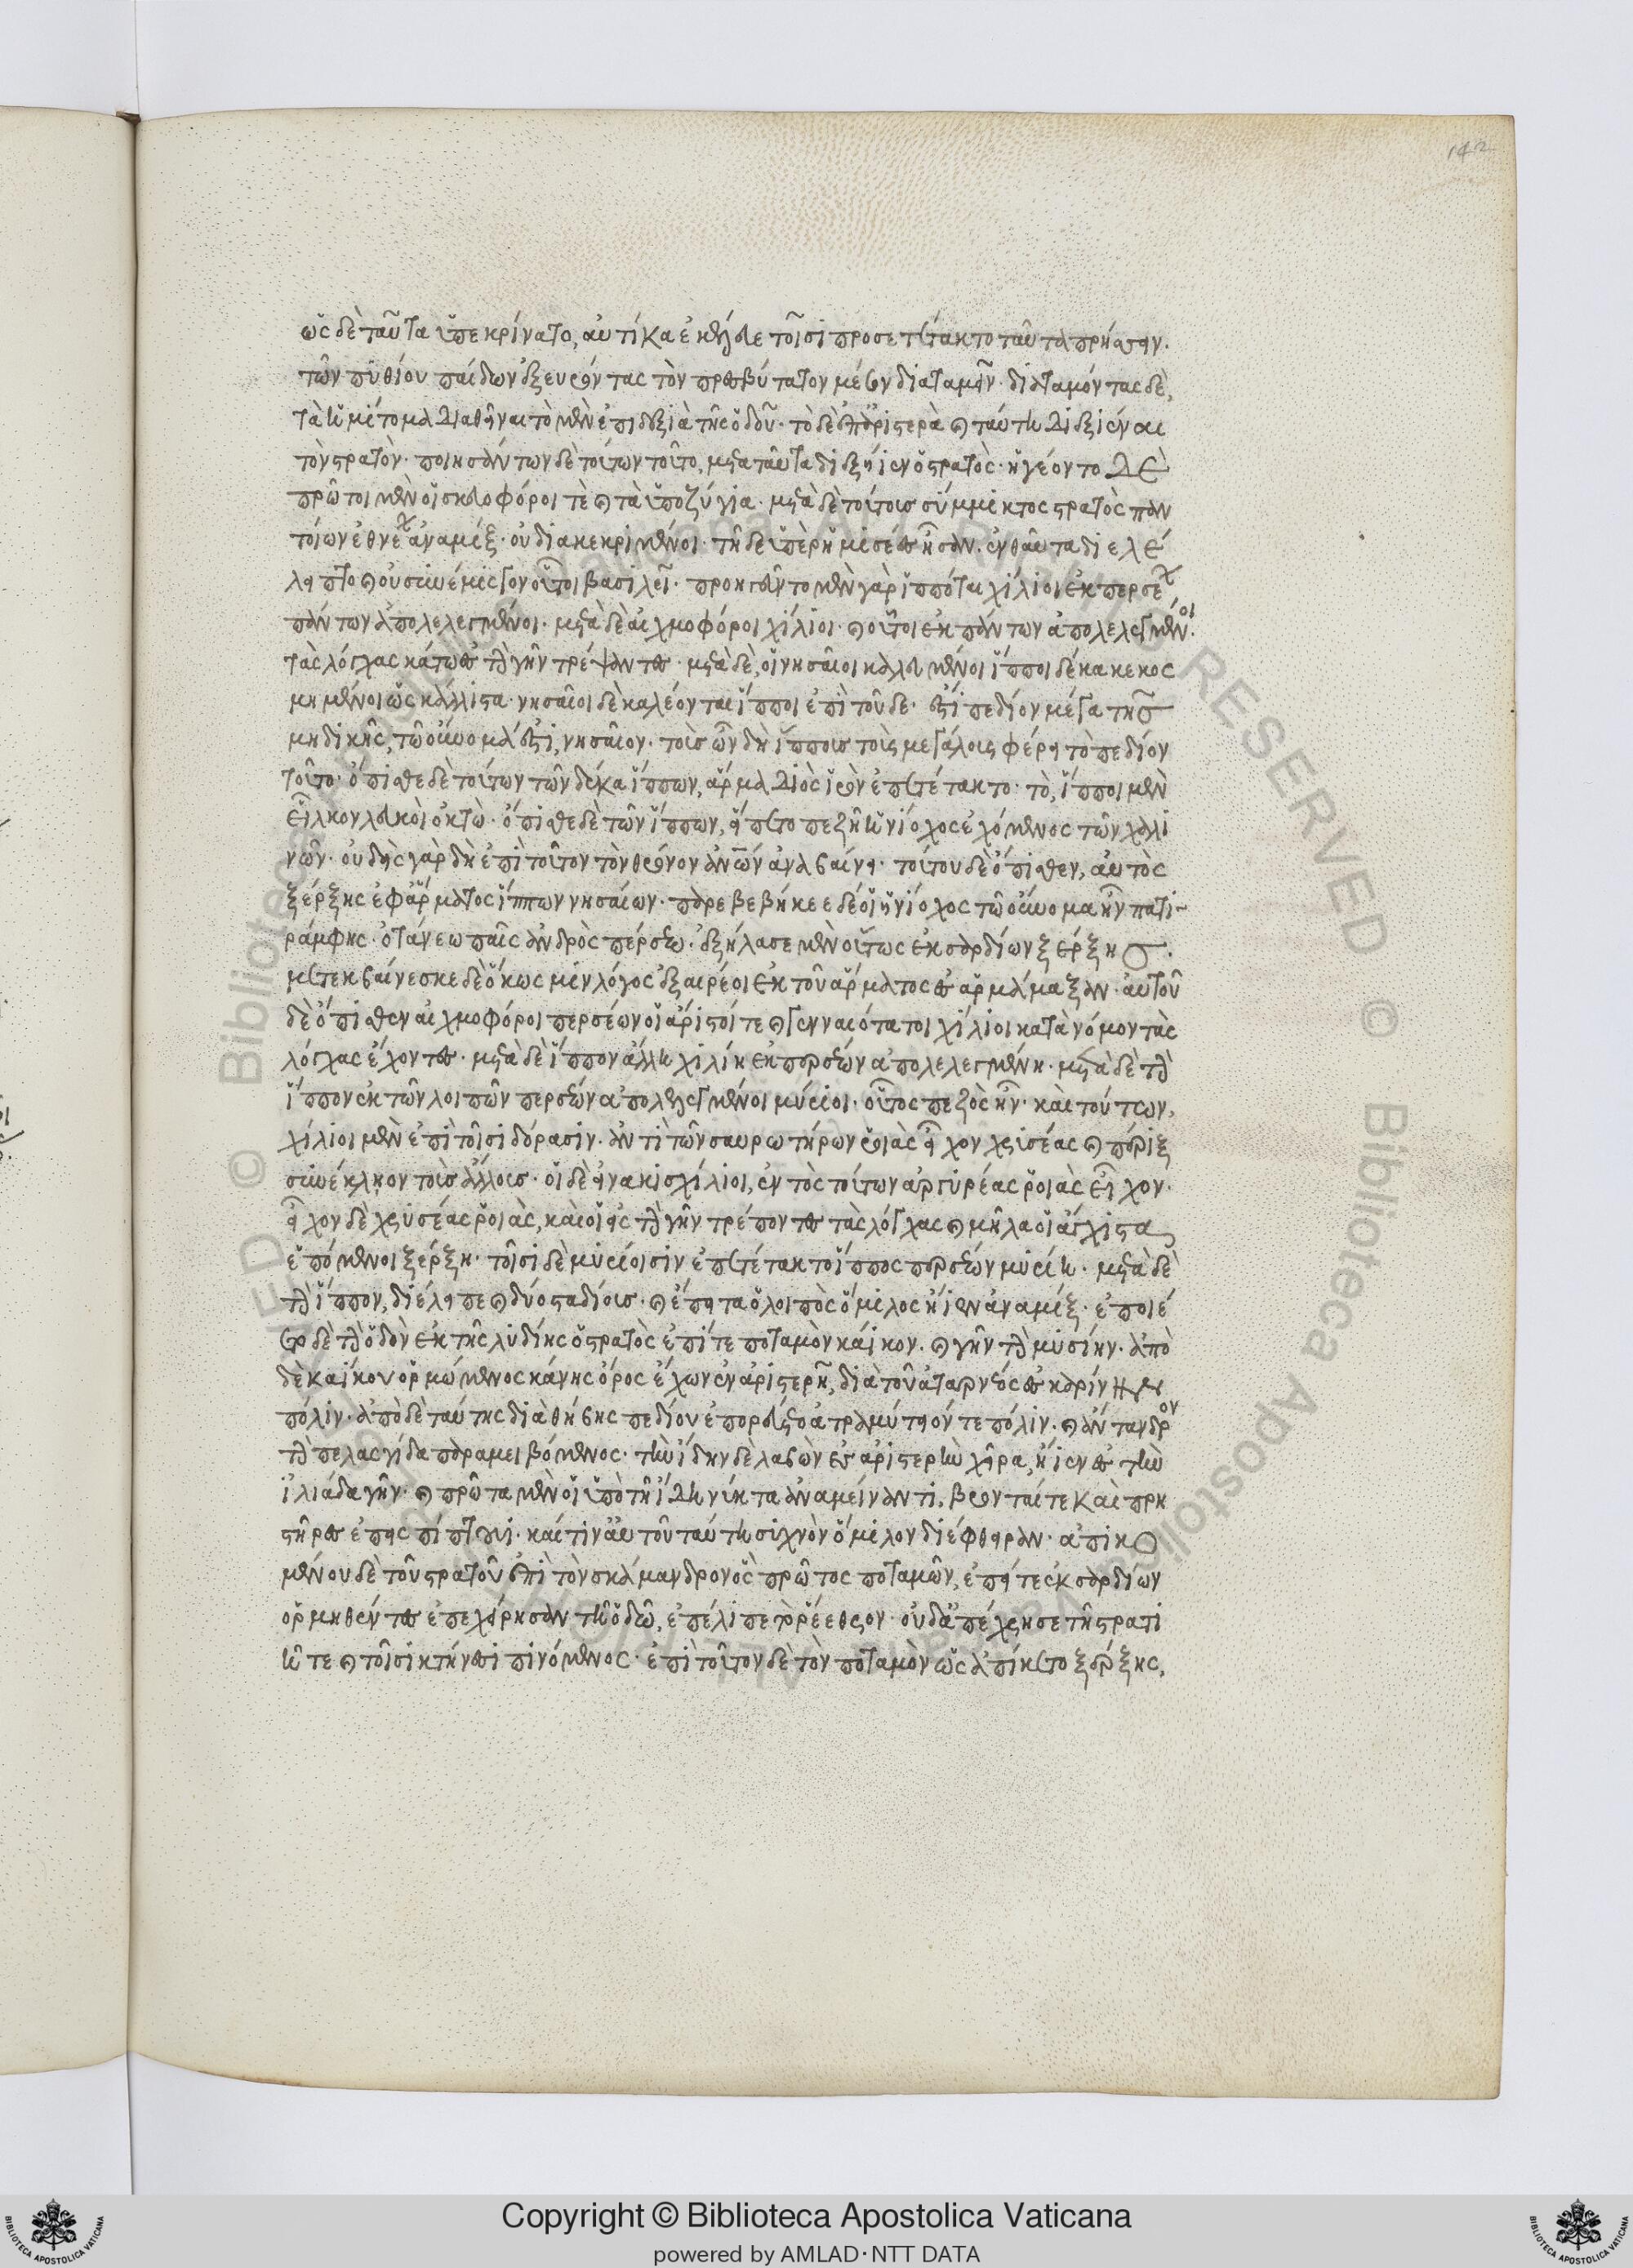 142
ὡς δὲ ταῦτα ὑπεκρίνατο, αὐτίκα ἐκέλευε τοῖσι προσετέτακτο ταῦτα πρήσσειν.
τῶν πυθίου παίδων ἐξευρόντας τὸν πρεσβύτατον μέσον διαταμεῖν. διαταμόντας δὲ,
τὰ ἡμίτομα διαθεῖναι τὸ μὲν ἐπιδεξιὰ τῆς ὁδοῦ. τὸ δ' ἐπαριστερὰ καὶ ταύτη διεξιέναι
τὸν στρατόν. ποιησάντων δὲ τούτων τοῦτο, μετὰ ταῦτα διεξήιεν ὁ στρατὸς. ἡγέοντο δὲ
πρῶτοι μὲν οἱ σκευοφόροι τὲ καὶ τὰ ὑποζύγια. μετὰ δὲ τούτοισι σύμμικτος στρατὸς παν
τοίων ἐθνέων ἀναμίξ. οὐ διακεκριμένοι. τῆ δὲ ὑπερημίσεες ἦσαν. ἐνθαῦτα διελέ
λειπτο καὶ οὐ συνέμισγον οὗτοι βασιλεῖ. προηγεῦντο μὲν γὰρ ἱππόται χίλιοι ἐκ περσέων
πάντων ἀπολελεγμένοι. μετὰ δὲ αἰχμοφόροι χίλιοι. καὶ οὗτοι ἐκ πάντων ἀπολελεγμένοι.
τὰς λόγχας κάτω ἐς τὴν γῆν τρέψαντες. μετὰ δὲ, οἱ νησαῖοι καλεόμενοι ἵπποι δέκα κεκοσ
μημένοι ὡς κάλλιστα. νησαῖοι δὲ καλέονται ἵπποι ἐπὶ τοῦδε. ἔστι πεδίον μέγα τῆς
μηδικῆς, τῶ οὔνομά ἐστι, νήσαιον. τοὺς ὦν δὴ ἵππους τοὺς μεγάλους φέρει τὸ πεδίον
τοῦτο. ὄπισθε δὲ τούτων τῶν δέκα ἵππων, ἅρμα διὸς ἱρὸν ἐπετέτακτο. τὸ, ἵπποι μὲν
εἷλκον λευκοὶ ὀκτὼ. ὄπισθε δὲ τῶν ἵππων, εἵπετο πεζῆ ἡνίοχος ἐχόμενος τῶν χαλι
νῶν. οὐδεὶς γὰρ δὴ ἐπὶ τοῦτον τὸν θρόνον ἀνῶν ἀναβαίνει. τούτου δὲ ὄπισθεν, αὐτὸς
ξέρξης ἐφ' ἅρματος ἵππων νησαίων. παρεβεβήκεε δέ οἱ ἡνίοχος τῶ οὔνομα ἦν πατι-
ράμφης. ὀτάνεω παῖς ἀνδρὸς πέρσεω. ἐξήλασε μὲν οὕτως ἐκ σαρδίων ξέρξης.
μετεκβαίνεσκε δὲ ὅκως μιν λόγος ἐξαιρέοι ἐκ τοῦ ἅρματος ἐς ἁρμάμαξαν. αὐτοῦ
δὲ ὄπισθεν αἰχμοφόροι περσέων οἱ ἄριστοί τε καὶ γενναιότατοι χίλιοι κατὰ νόμον τὰς
λόγχας ἔχοντες. μετὰ δὲ ἵππον ἄλλη χιλίη ἐκ περσέων ἀπολελεγμένη. μετὰ δὲ τὴν
ἵππον ἐκ τῶν λοιπῶν περσέων ἀπολελεγμένοι μύριοι. οὗτος πεζὸς ἦν. καὶ τούτων,
χίλιοι μὲν ἐπὶ τοῖσι δόρασιν. ἀντὶ τῶν σαυρωτήρων ῥοιὰς εἶχον χρυσέας καὶ πέριξ
συνέκληον τοὺς ἄλλους. οἱ δὲ εἰνακισχίλιοι, ἐντὸς τούτων ἀργυρέας ῥοιὰς εἶχον.
εἶχον δὲ χρυσέας ῥοιὰς, καὶ οἱ ἐς τὴν γῆν τρέποντες τὰς λόγχας καὶ μῆλα οἱ ἄγχιστα
ἑπόμενοι ξέρξη. τοῖσι δὲ μυρίοισιν ἐπετέτακτο ἵππος περσέων μυρίη. μετὰ δὲ
τὴν ἵππον, διέλειπε καὶ δύο σταδίους. καὶ ἔπειτα ὁ λοιπὸς ὅμιλος ἤιεν ἀναμίξ. ἐποιέ
ετο δὲ τὴν ὁδὸν ἐκ τῆς λυδίης ὁ στρατὸς ἐπί τε ποταμὸν κάϊκον. καὶ γῆν τὴν μυσίην. ἀπὸ
δὲ καΐκου ὁρμώμενος κάνης ὄρος ἔχων ἐν ἀριστερῆ, διὰ τοῦ ἀταρνέος ἐς καρίνην
πόλιν. ἀπὸ δὲ ταύτης διὰ θήβης πεδίον ἐπορεύετο ἀτραμύτειόν τε πόλιν. καὶ ἄντανδρον
τὴν πελασγίδα παραμειβόμενος. τὴν ἴδην δὲ λαβὼν ἐς ἀριστερὴν χεῖρα, ἤιεν ἐς τὴν
ἰλιάδα γῆν. καὶ πρῶτα μὲν οἱ ὑπὸ τῆ ἴδη νύκτα ἀναμείναντι, βρονταί τε καὶ πρη
στῆρες ἐπεισπίπτουσι. καί τινα αὐτοῦ ταύτη συχνὸν ὅμιλον διέφθειραν. ἀπικο
μένου δὲ τοῦ στρατοῦ ἐπὶ τὸν σκάμανδρον ὃς πρῶτος ποταμῶν, ἐπείτε ἐκ σαρδίων
ὁρμηθέντες ἐπεχείρησαν τῆ ὁδῶ, ἐπέλιπε τὸ ῥέεθρον. οὐδ' ἀπέχρησε τῆ στρατι
ῆ τε καὶ τοῖσι κτήνεσι πινόμενος. ἐπὶ τοῦτον δὲ τὸν ποταμὸν ὡς ἀπίκετο ξέρξης,
Copyright © Biblioteca Apostolica Vaticana
powered by AMLAD·NTT DATA